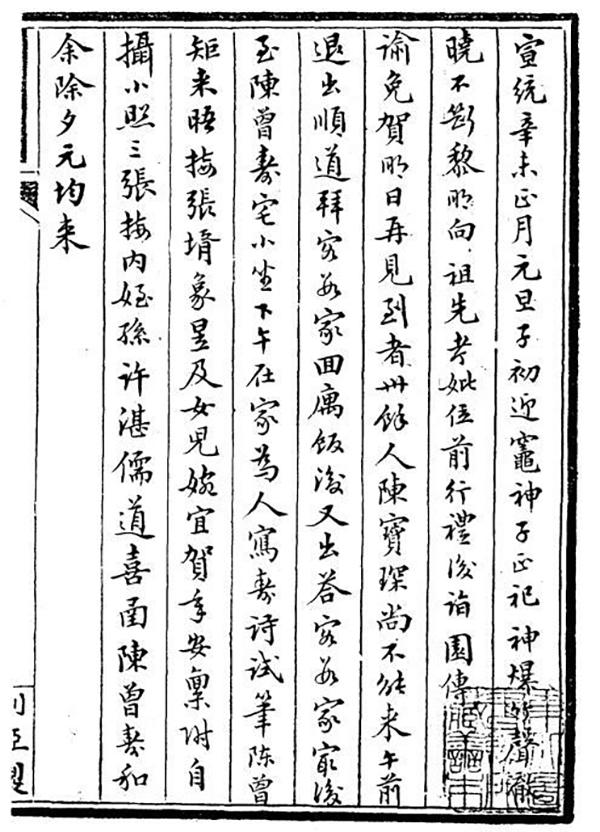 宣統辛未正月元旦子初迎竈神子正祀神爆竹聲徹
曉不斷黎明向祖先考妣位前行禮後詣園傳
諭免賀明日再見到者卅餘人陳寶琛尚不能來午前
退出順道拜客數家回寓飯後又出答客數家最後
至陳曾壽宅小坐下午在家為人寫壽詩試筆陳曾
矩來晤接張壻象昱及女兒婉宜賀年安稟附自
攝小照三張接內姪孫許湛儒道喜函陳曾壽和
余除夕元均來